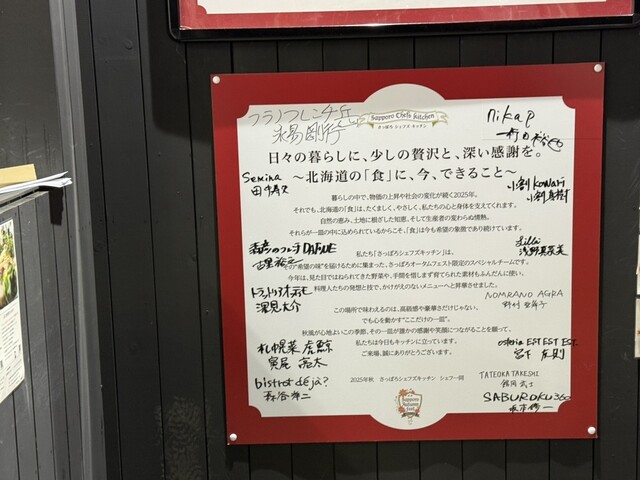 Sapporo Chefs Kitchen
さっぽろ シェフズ キッチン
フラノフレンチ丘
nikaρ
日々の暮らしに、少しの贅沢と、深い感謝を。
～北海道の「食」に、今、できること～
Semina
小割 Kowari
暮らしの中で、物価の上昇や社会の変化が続く2025年。
それでも、北海道の「食」は、たくましく、やさしく、私たちの心と身体を支えてくれます。
自然の恵み、土地に根ざした知恵、そして生産者の変わらぬ情熱。
それらが一皿の中に込められているからこそ、「食」は今も希望の象徴であり続けています。
DAFNE
私たち「さっぽろシェフズキッチン」は、
その“希望の味”を届けるために集まった、さっぽろオータムフェスト限定のスペシャルチームです。
今年は、見た目ではねられてきた野菜や、手間を惜しまず育てられた素材もふんだんに使い、
料理人たちの発想と技で、かけがえのないメニューへと昇華させました。
深見太介
NOMRANO AGRA
この場所で味わえるのは、高級感や豪華さだけじゃない。
でも心を動かす“ここだけの一皿”。
秋風が心地よいこの季節、その一皿が誰かの感謝や笑顔につながることを願って、
私たちは今日もキッチンに立っています。
ご来場、誠にありがとうございます。
札幌菜 虎鯨
osteria EST EST EST.
bistrot déjà?
2025年秋 さっぽろシェフズキッチン シェフ一同
TATEOKA TAKESHI
舘岡 武士
SABUROKU360
Sapporo
Autumn
fest